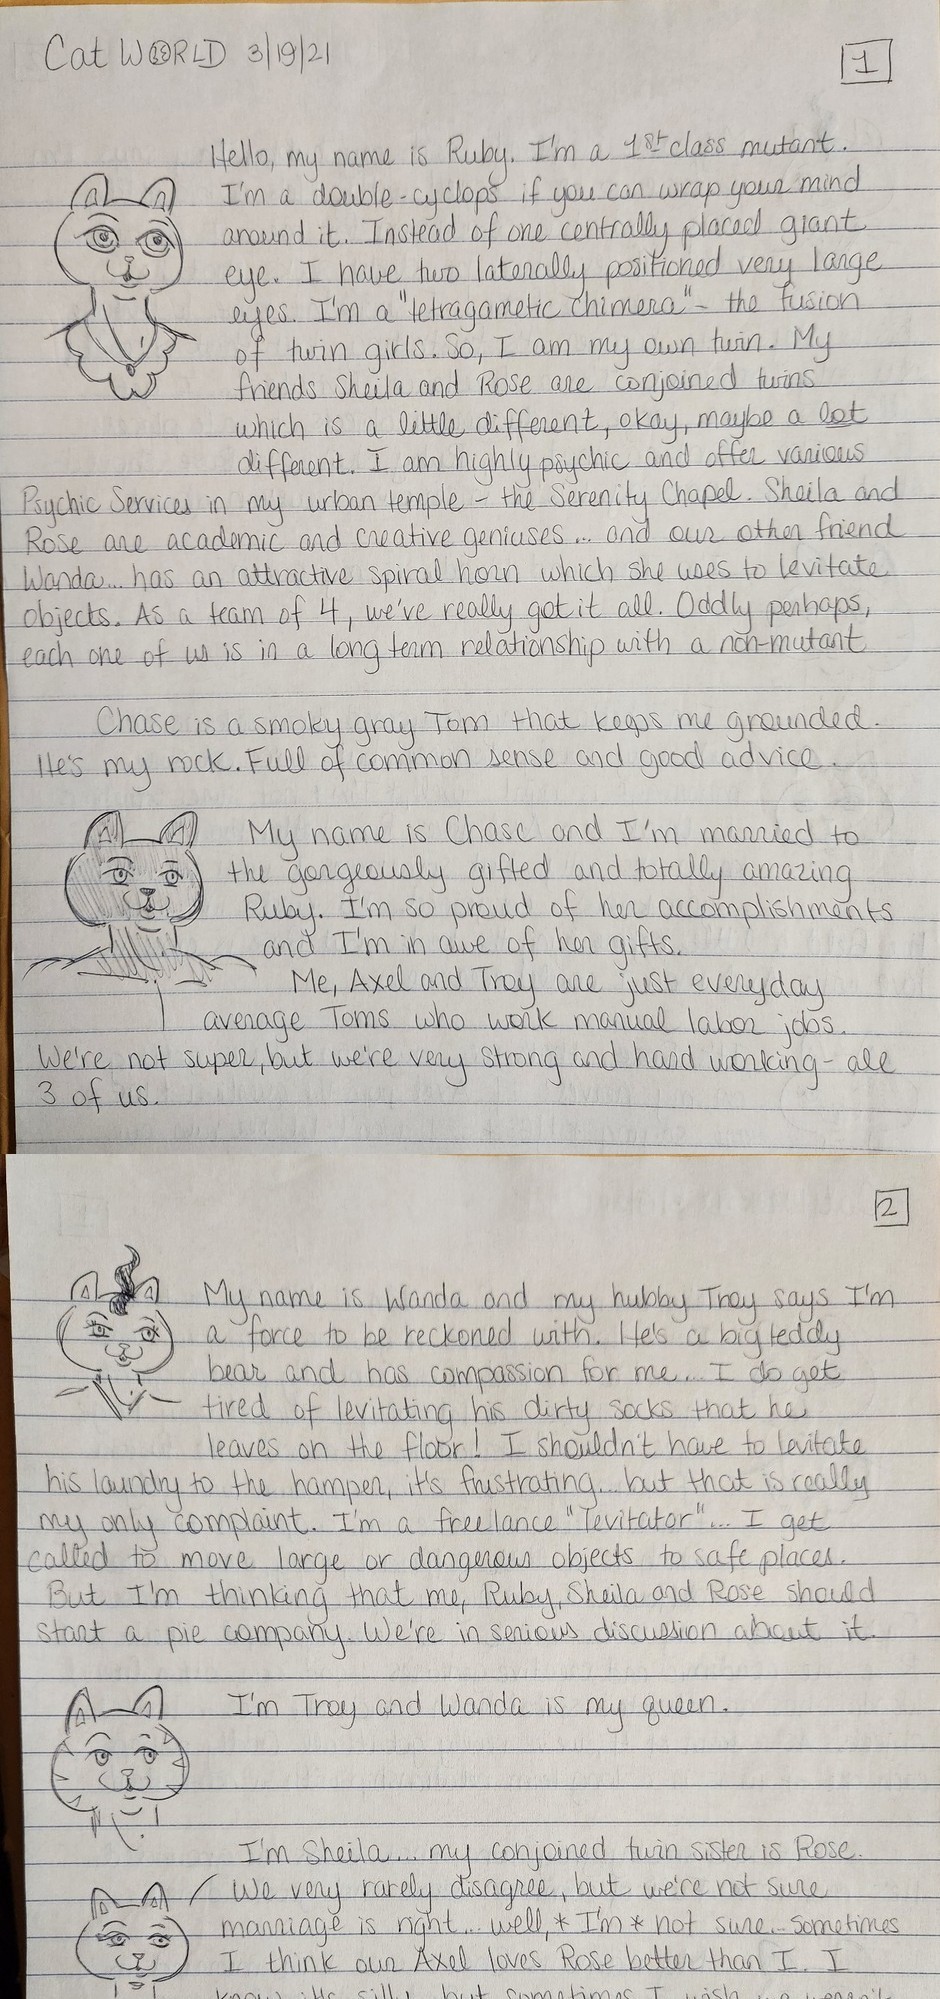 Cat WORLD 3/19/21
1
Hello, my name is Ruby. I'm a 1st class mutant.
I'm a double-cyclops if you can wrap your mind
around it. Instead of one centrally placed giant
eye. I have two laterally positioned very large
eyes. I'm a "tetragametic chimera" - the fusion
of twin girls. So, I am my own twin. My
friends Sheila and Rose are conjoined twins
which is a little different, okay, maybe a lot
different. I am highly psychic and offer various
Psychic Services in my urban temple - the Serenity Chapel. Sheila and
Rose are academic and creative geniuses... and our other friend
Wanda... has an attractive spiral horn which she uses to levitate
objects. As a team of 4, we've really got it all. Oddly perhaps,
each one of us is in a long term relationship with a non-mutant
Chase is a smoky gray Tom that keeps me grounded.
He's my rock. Full of common sense and good advice.
My name is Chase and I'm married to
the gorgeously gifted and totally amazing
Ruby. I'm so proud of her accomplishments
and I'm in awe of her gifts.
Me, Axel and Troy are just everyday
average Toms who work manual labor jobs.
We're not super, but we're very strong and hard working - all
3 of us.
2
My name is Wanda and my hubby Troy says I'm
a force to be reckoned with. He's a big teddy
bear and has compassion for me... I do get
tired of levitating his dirty socks that he
leaves on the floor! I shouldn't have to levitate
his laundry to the hamper, it's frustrating... but that is really
my only complaint. I'm a freelance "levitator"... I get
called to move large or dangerous objects to safe places.
But I'm thinking that me, Ruby, Sheila and Rose should
start a pie company. We're in serious discussion about it.
I'm Troy and Wanda is my queen.
I'm Sheila... my conjoined twin sister is Rose.
We very rarely disagree, but we're not sure
marriage is right... well, *I'm* not sure... Sometimes
I think our Axel loves Rose better than I. I
know it's silly, but sometimes I wish we weren't